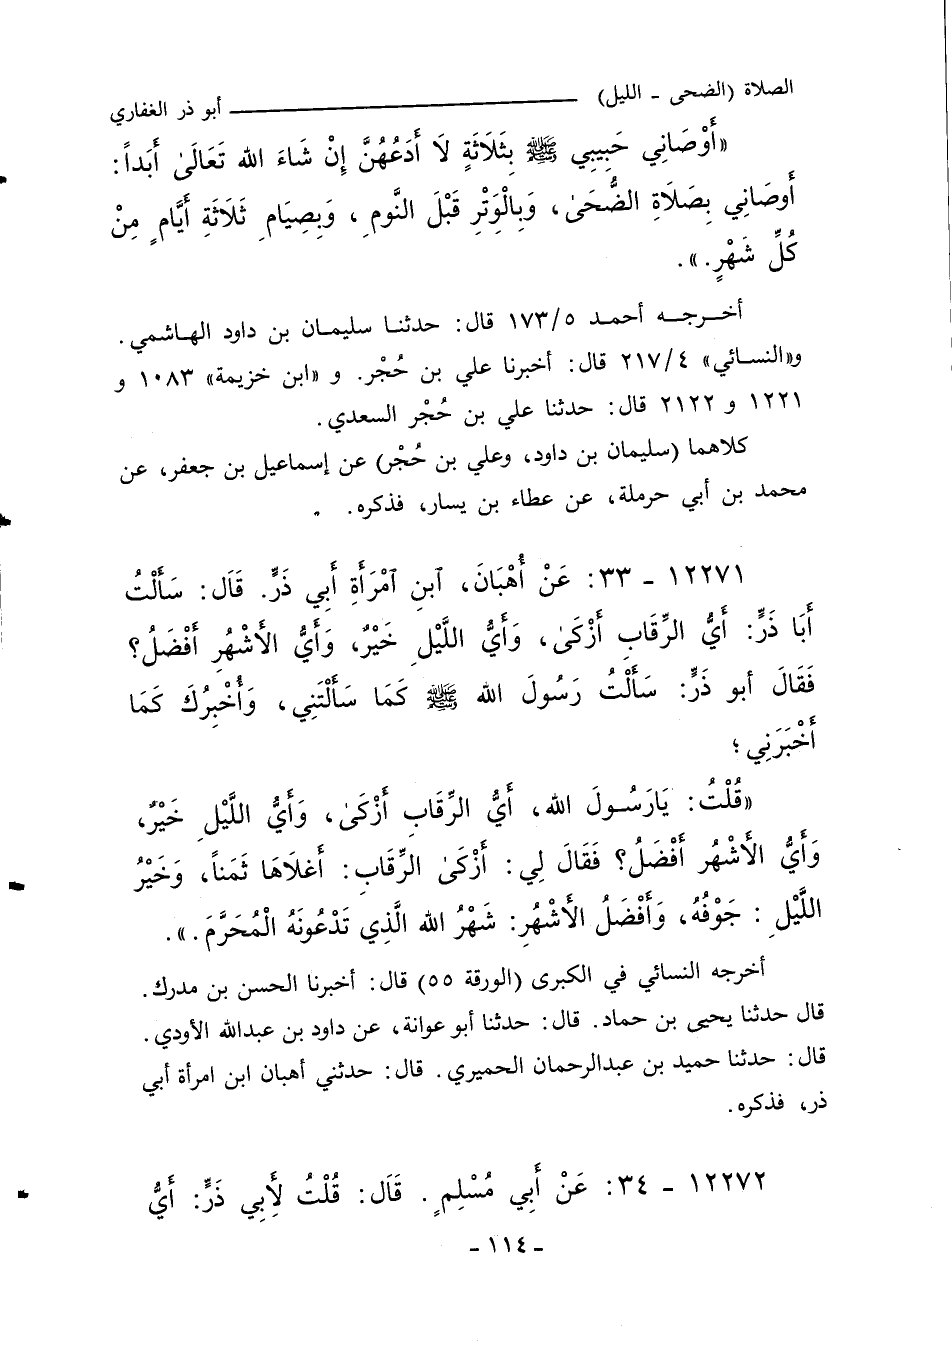 الصلاة (الضحى - الليل) ــــــــــ أبو ذر الغفاري
«أَوْصَانِي حَبِيبِي ﷺ بِثَلَاثَةٍ لَا أَدَعُهُنَّ إِنْ شَاءَ الله تَعَالَىٰ أَبَداً:
أَوصَانِي بِصَلَاةِ الضُّحَىٰ، وَبِالْوَتْرِ قَبْلَ النَّومِ، وَبِصِيَامِ ثَلَاثَةِ أَيَّامٍ مِنْ
كُلِّ شَهْرٍ.».
أخـرجـه أحمـد ١٧٣/٥ قال: حدثنـا سليمـان بن داود الهـاشمي.
و«النسـائي» ٢١٧/٤ قال: أخبرنا علي بن حُجْر. و «ابن خزيمة» ١٠٨٣ و
١٢٢١ و ٢١٢٢ قال: حدثنا علي بن حُجْر السعدي.
كلاهما (سليمان بن داود، وعلي بن حُجْر) عن إسماعيل بن جعفر، عن
محمد بن أبي حرملة، عن عطاء بن يسار، فذكره.
١٢٢٧١ - ٣٣: عَنْ أُهْبَانَ، آبنِ آمْرَأَةِ أَبِي ذَرٍّ. قَالَ: سَأَلْتُ
أَبَا ذَرٍّ: أَيُّ الرِّقَابِ أَزْكَىٰ، وَأَيُّ اللَّيْلِ خَيْرٌ، وَأَيُّ الْأَشْهُرِ أَفْضَلُ؟
فَقَالَ أبو ذَرٍّ: سَأَلْتُ رَسُولَ الله ﷺ كَمَا سَأَلْتَنِي، وَأُخْبِرُكَ كَمَا
أَخْبَرَنِي؛
«قُلْتُ: يَارَسُـولَ الله، أَيُّ الرِّقَابِ أَزْكَىٰ، وَأَيُّ اللَّيْلِ خَيْرٌ،
وَأَيُّ الْأَشْهُر أَفْضَلُ؟ فَقَالَ لِي: أَزْكَىٰ الرِّقَابِ: أَغلَاهَا ثَمَناً، وَخَيْرُ
اللَّيْلِ: جَوْفُهُ، وَأَفْضَلُ الْأَشْهُرِ: شَهْرُ الله الَّذِي تَدْعُونَهُ الْمُحَرَّمَ.».
أخرجه النسائي في الكبرى (الورقة ٥٥) قال: أخبرنا الحسن بن مدرك.
قال حدثنا يحيى بن حماد. قال: حدثنا أبو عوانة، عن داود بن عبدالله الأودي.
قال: حدثنا حميد بن عبدالرحمان الحميري. قال: حدثني أهبان ابن امرأة أبي
ذر، فذكره.
١٢٢٧٢ - ٣٤: عَنْ أَبِي مُسْلِمٍ. قَالَ: قُلْتُ لِأَبِي ذَرٍّ: أَيُّ
- ١١٤ -